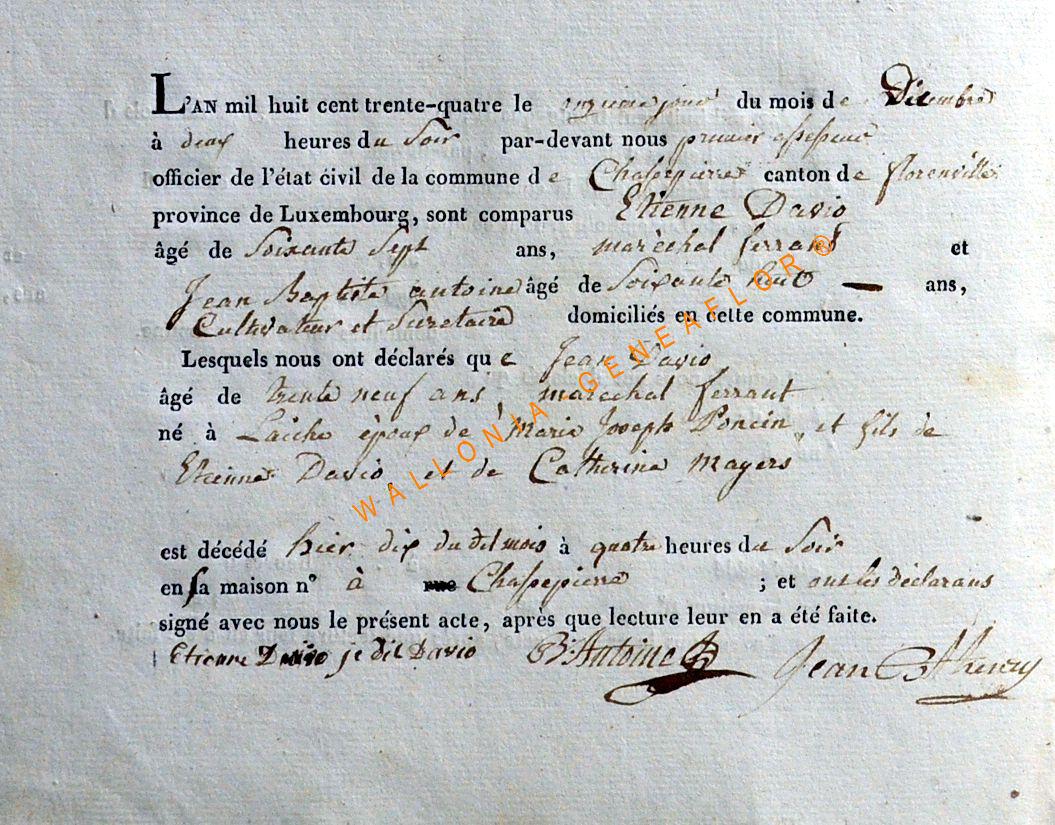 L'AN mil huit cent trente-quatre le onzieme jour du mois de Décembre
à deux heures du Soir par-devant nous premier assesseur
officier de l'état civil de la commune de Chassepierre canton de florenville
province de Luxembourg, sont comparus Etienne Davio
âgé de Soixante Sept ans, maréchal ferrant et
Jean Baptiste antoine âgé de Soixante huit — ans,
Cultivateur et Secretaire domiciliés en cette commune.
Lesquels nous ont déclarés que Jean Davio
âgé de trente neuf ans, maréchal ferrant
né à Laiche époux de Marie Joseph Poncin, et fils de
Etienne Davio, et de Catherine Mayers
est décédé hier dix du dit mois à quatre heures du Soir
en sa maison n° à rue Chassepierre ; et ont les déclarans
signé avec nous le présent acte, après que lecture leur en a été faite.
Etienne Davio je dit Davio B. Antoine Jean B. thiery
WALLONIA GENEAFLOR ®